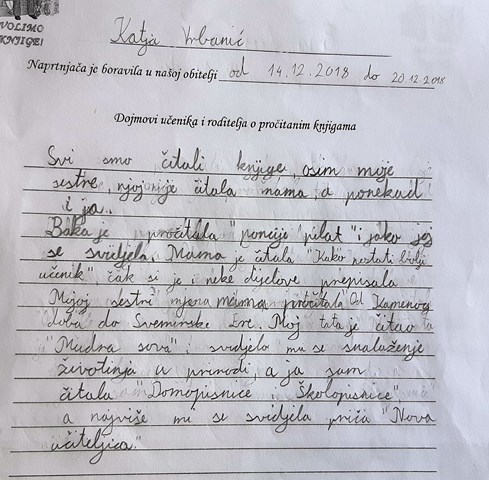 VOLIMO
KNJIGE!
Katja Vrbanić
Naprtnjača je boravila u našoj obitelji od 14.12.2018 do 20.12.2018
Dojmovi učenika i roditelja o pročitanim knjigama
Svi smo čitali knjige, osim moje
sestre, njoj je čitala mama, a ponekad
i ja.
Baka je pročitala "poncije pilat" i jako joj
se svidjela. Mama je čitala "Kako postati bolji
učenik" čak si je i neke dijelove prepisala
Mojoj sestri mama pročitala Od Kamenog
doba do Svemirske Ere. Moj tata je čitao
"Mudra sova" i svidjelo mu se snalaženje
životinja u prirodi, a ja sam
čitala "Domopisnice i Školopisnice"
a najviše mi se svidjela priča "Nova
učiteljica."